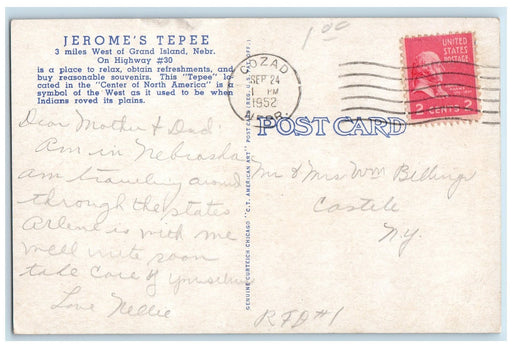 JEROME'S TEPEE
3 miles West of Grand Island, Nebr.
On Highway #30
is a place to relax, obtain refreshments, and
buy reasonable souvenirs. This "Tepee" lo-
cated in the "Center of North America" is a
symbol of the West as it used to be when
Indians roved its plains.
Dear Mother & Dad:
Am in Nebraska
am traveling around
through the states
Arlene is with me
well write soon
take care of yourselves
Love Nellie
GENUINE CURTEICH CHICAGO "C.T. AMERICAN ART" POST CARD (REG. U.S. PAT. OFF.)
1 00
COZAD
SEP 24
1 PM
1952
NEBR.
UNITED
STATES
POSTAGE
2 CENTS 2
POST CARD
Mr & Mrs Wm Bellinger
Castile
N.y.
RFD #1